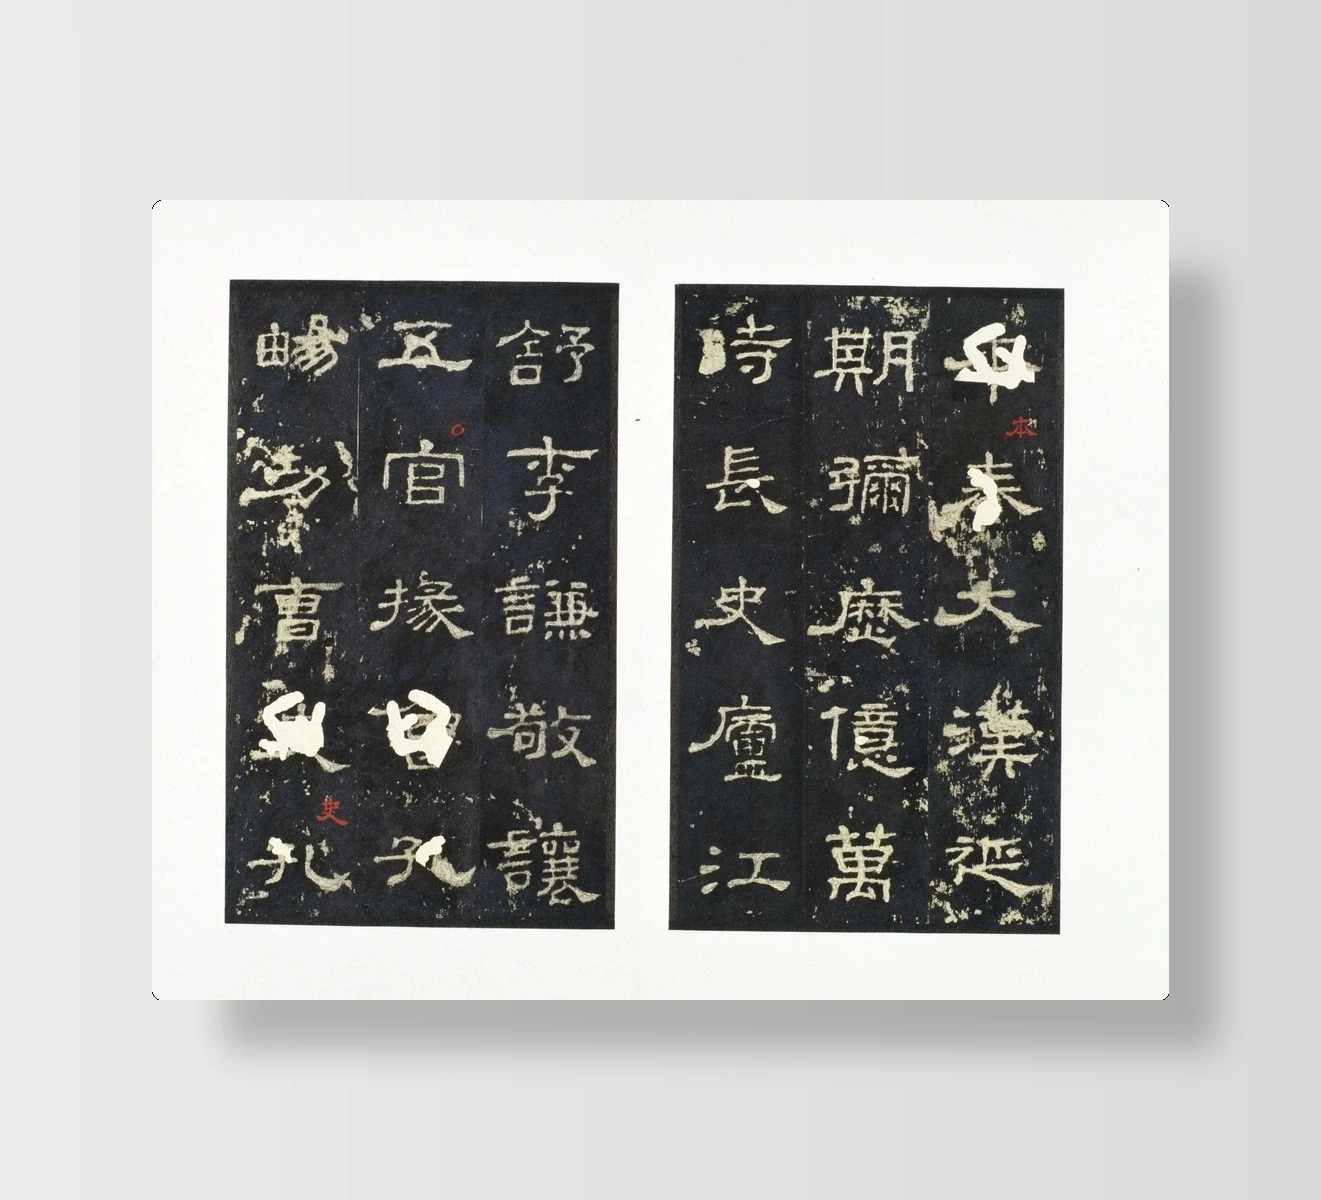 本
大漢延
期彌歷億萬
時長史廬江
舒李謙敬讓
五官掾孔
暢功曹
史
孔